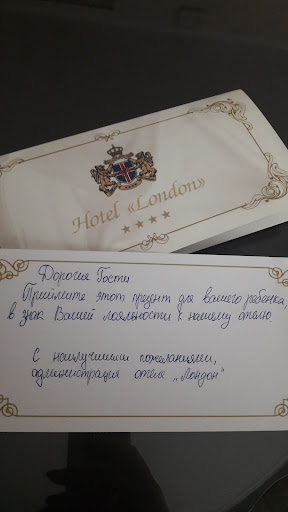 Hotel «London»
Дорогие Гости
Примите этот презент для вашего ребенка,
в знак Вашей лояльности к нашему отелю.
С наилучшими пожеланиями,
администрация отеля „Лондон"